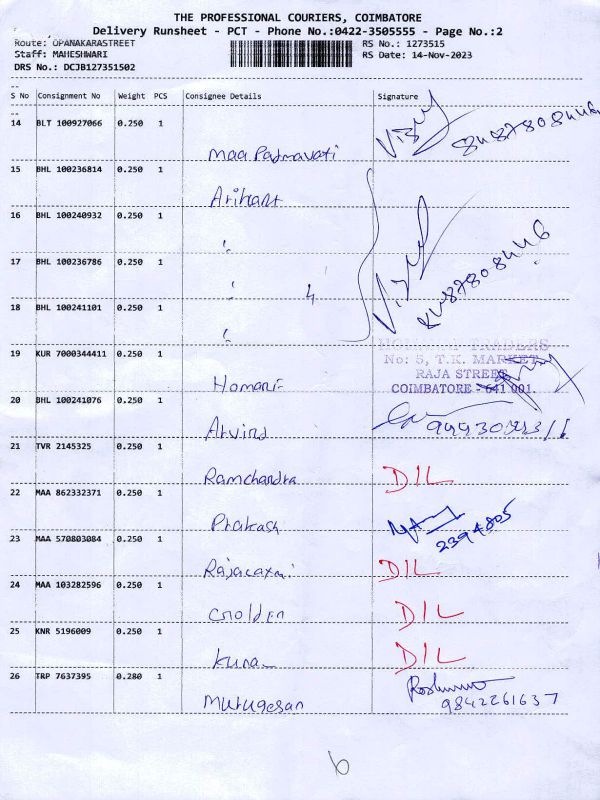 THE PROFESSIONAL COURIERS, COIMBATORE
Delivery Runsheet - PCT - Phone No.:0422-3505555 - Page No.:2
Route: OPANAKARASTREET RS No.: 1273515
Staff: MAHESHWARI RS Date: 14-Nov-2023
DRS No.: DCJB127351502
S No Consignment No Weight PCS Consignee Details Signature
14 BLT 100927066 0.250 1
Maa Padmavati
15 BHL 100236814 0.250 1
Arihant
16 BHL 100240932 0.250 1
17 BHL 100236786 0.250 1
4
18 BHL 100241101 0.250 1
19 KUR 7000344411 0.250 1
TRADERS
No: 5, T.K. MARKET
RAJA STREET
COIMBATORE - 641 001.
20 BHL 100241076 0.250 1
Arvind
21 TVR 2145325 0.250 1
Ramchandra DIL
22 MAA 862332371 0.250 1
Prakash 2394805
23 MAA 570803084 0.250 1
Rajalaxmi DIL
24 MAA 103282596 0.250 1
Golden DIL
25 KNR 5196009 0.250 1
DIL
26 TRP 7637395 0.280 1
Murugesan 9842261637
6